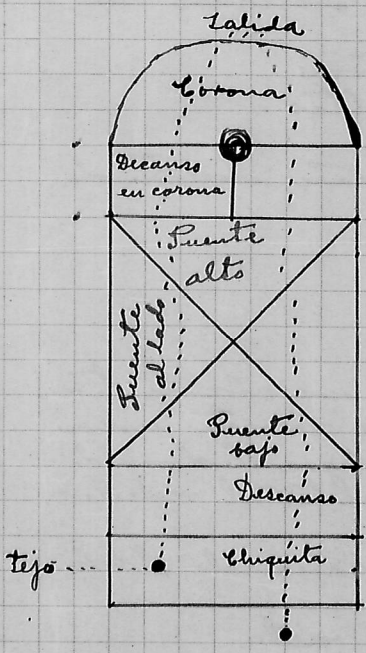 Salida
Corona
Decanso
en corona
Puente
alto
Puente
al lado
Puente
bajo
Descanso
Chiquita
tejo